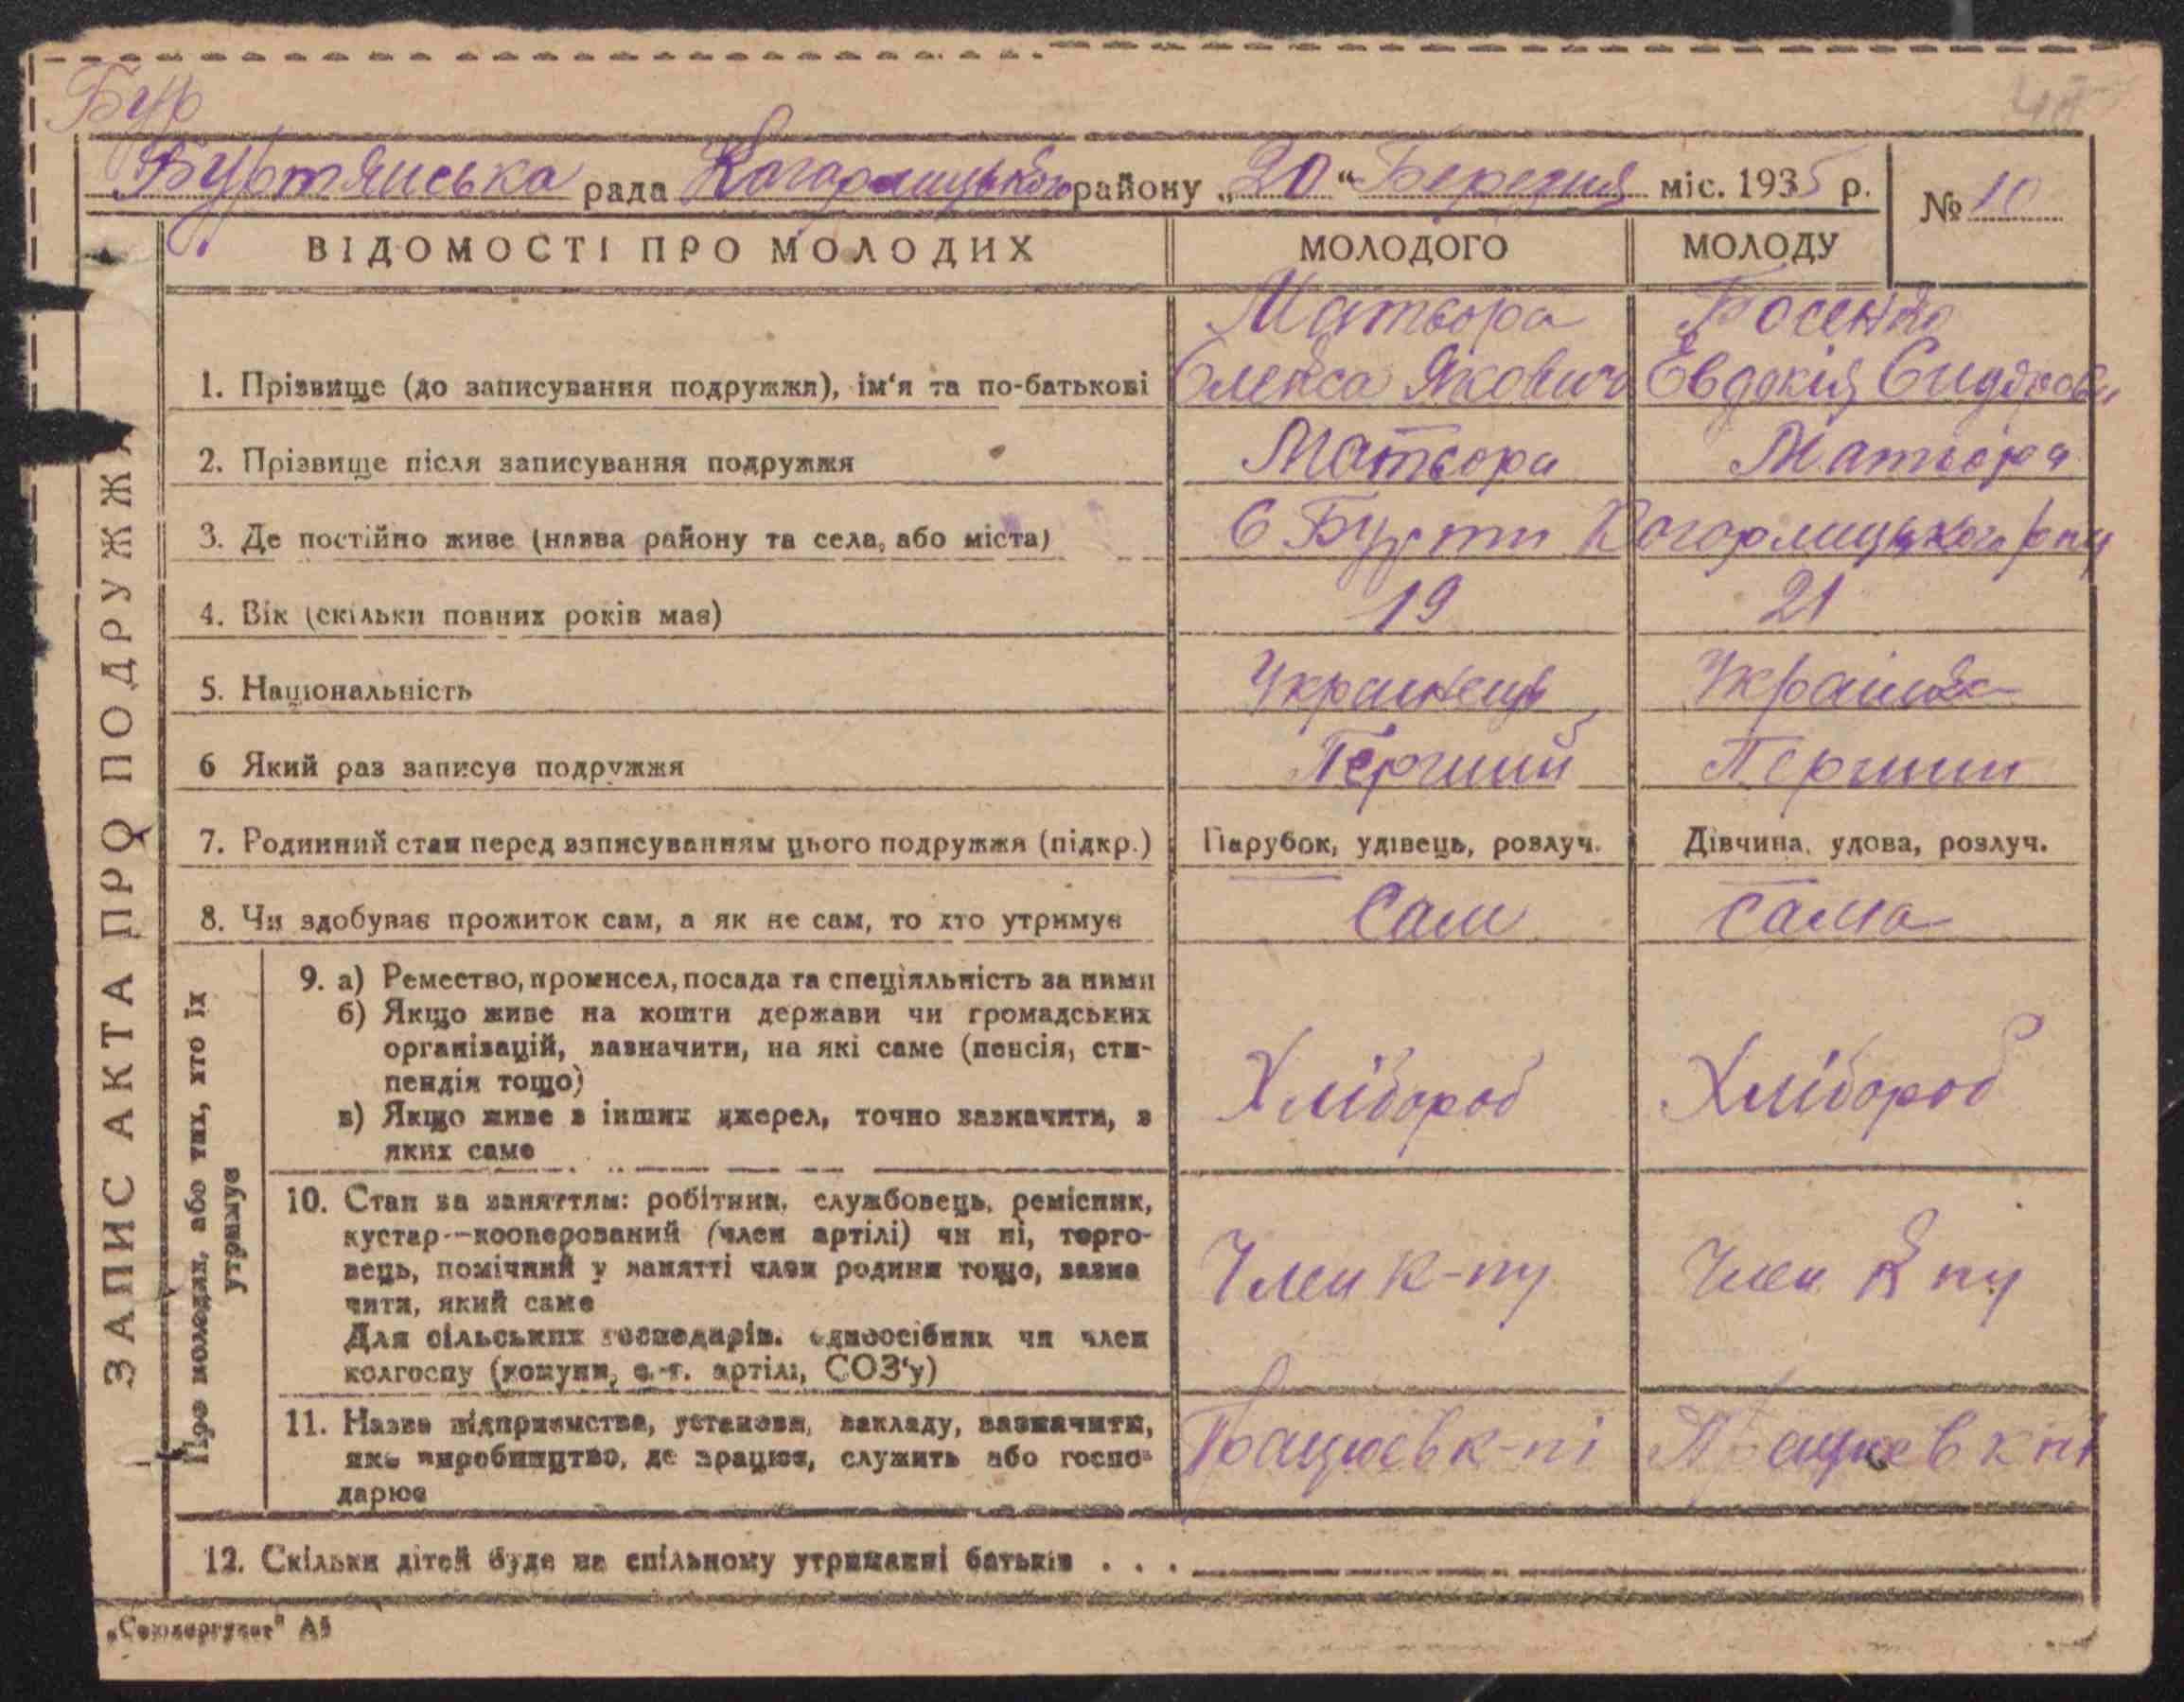 Бур
Буртянська рада Кагарлицького району „20“ Березня міс. 1935 р.
№ 10
ВІДОМОСТІ ПРО МОЛОДИХ МОЛОДОГО МОЛОДУ
ЗАПИС АКТА ПРО ПОДРУЖЖЯ
Матвора Босенко
1. Прізвище (до записування подружжя), ім'я та по-батькові Олекса Якович Євдокія Сидоров.
2. Прізвище після записування подружжя Матвора Матвора
3. Де постійно живе (назва району та села, або міста) С Бурти Кагарлицького р-ну
4. Вік (скільки повних років має) 19 21
5. Національність Українець Українка
6 Який раз записує подружжя Перший Перший
7. Родинний стан перед записуванням цього подружжя (підкр.) Парубок, удівець, розлуч. Дівчина, удова, розлуч.
8. Чи здобуває прожиток сам, а як не сам, то хто утримує Сам Сама
Про молодих, або тих, хто їх
утримує
9. а) Ремество, промисел, посада та спеціяльність за ними
б) Якщо живе на кошти держави чи громадських
організацій, зазначити, на які саме (пенсія, сти-
пендія тощо)
в) Якщо живе з інших джерел, точно зазначити, з
яких саме
Хлібороб Хлібороб
10. Стан за заняттям: робітник, службовець, ремісник,
кустар--кооперований (член артілі) чи ні, торго-
вець, помічний у занятті член родини тощо, зазна
чити, який саме
Для сільських господарів. одноосібник чи член
колгоспу (комуни, с.-г. артілі, СОЗ'у)
Член к-пу Член к пу
11. Назва підприємства, установи, закладу, зазначити,
яке виробництво, де працює, служить або госпо-
дарює
Працює в к-пі Працює в к пі
12. Скільки дітей буде на спільному утриманні батьків . . .